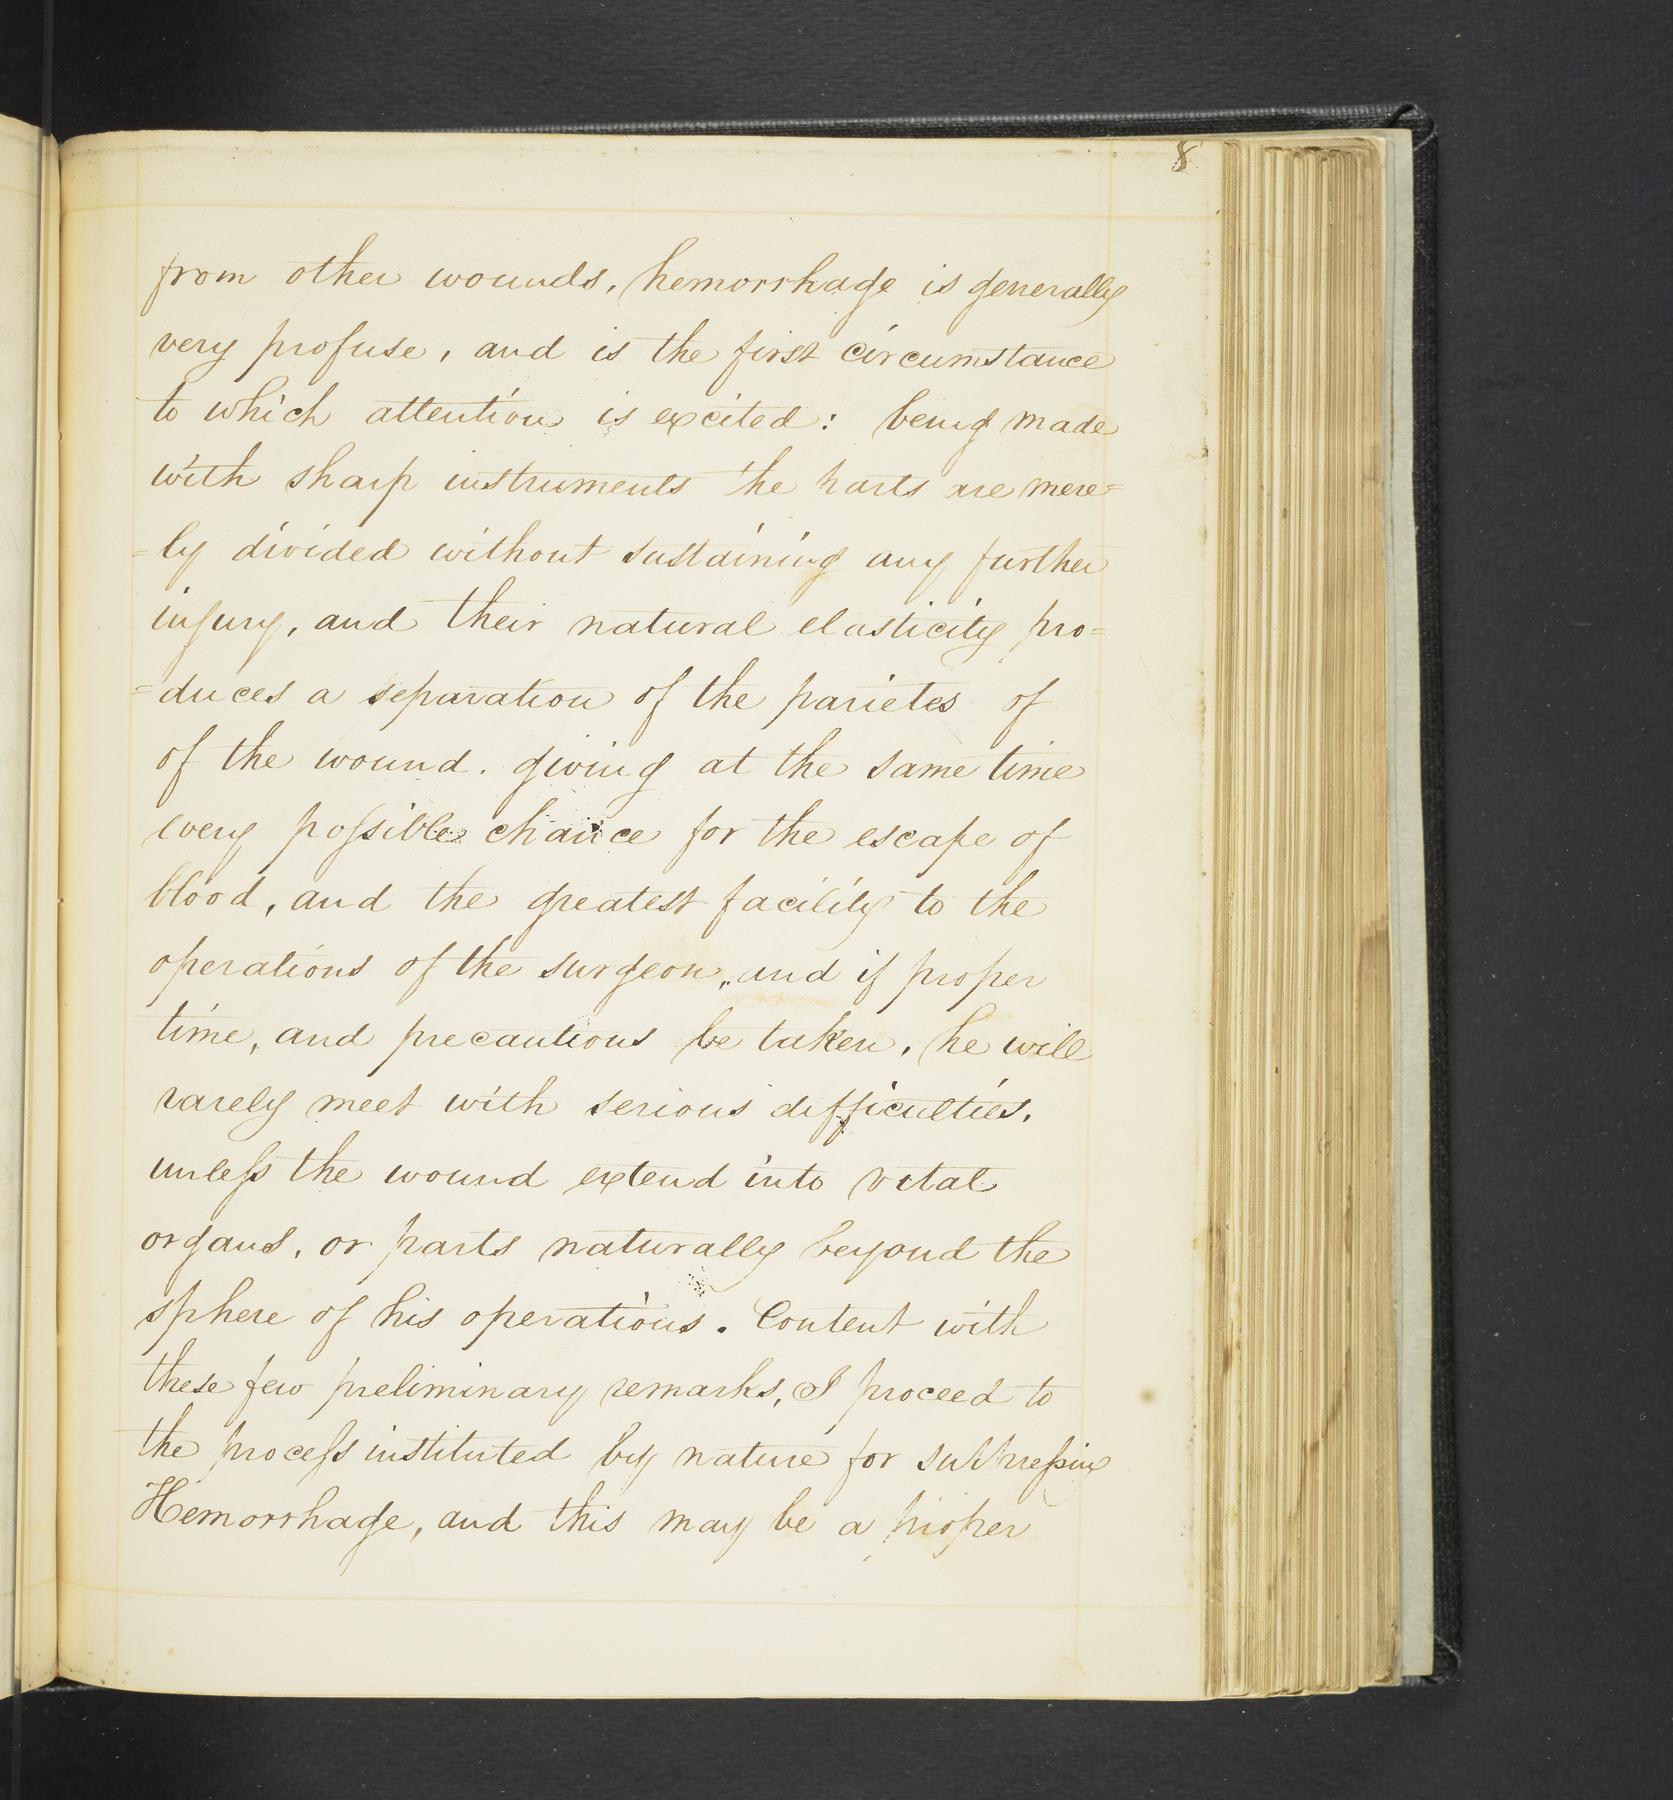 8
from other wounds, hemorrhage is generally
very profuse, and is the first circumstance
to which attention is excited: being made
with sharp instruments the parts are mere=
=ly divided without sustaining any further
injury, and their natural elasticity pro=
=duces a separation of the parietes of
of the wound. giving at the same time
every poſsible chance for the escape of
blood, and the greatest facility to the
operations of the surgeon, and if proper
time, and precautions be taken, he will
rarely meet with serious difficulties,
unleſs the wound extend into vital
organs, or parts naturally beyond the
sphere of his operations. Content with
these few preliminary remarks, I proceed to
the proceſs instituted by nature for suppreſsing
Hemorrhage, and this may be a proper